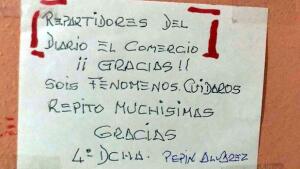 REPARTIDORES DEL
DIARIO EL COMERCIO
¡¡ GRACIAS!!
SOIS FENOMENOS. CUIDAROS
REPITO MUCHISIMAS
GRACIAS
4º DCHA. PEPIN ALVAREZ